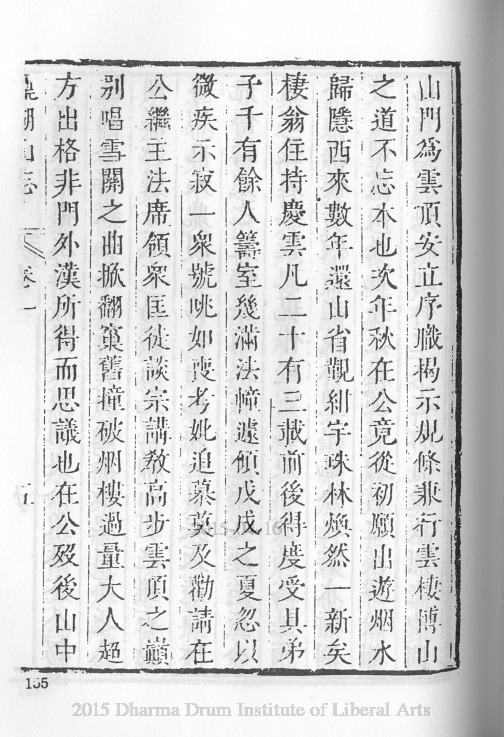 山門為雲頂安立序職揭示規條兼行雲棲博山
之道不忘本也次年秋在公竟從初願出遊烟水
歸隱西來數年還山省覲紺宇珠林煥然一新矣
棲翁住持慶雲凡二十有三載前後得度受具弟
子千有餘人籌室幾滿法幢遽傾戊戌之夏忽以
微疾示寂一衆號咷如喪考妣追慕莫及勸請在
公繼主法席領衆匡徒談宗講教高步雲頂之巔
別唱雪關之曲掀翻窠舊撞破烟樓過量大人超
方出格非門外漢所得而思議也在公歿後山中
鼎湖山志 卷一 五
165
2015 Dharma Drum Institute of Liberal Arts